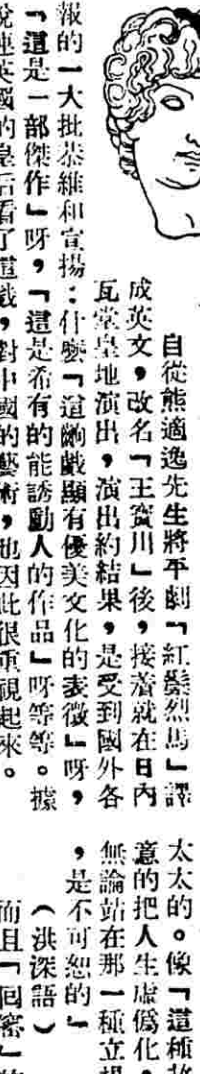 自從熊適逸先生將平劇「紅鬃烈馬」譯
成英文,改名「王寳川」後,接着就在日內
瓦堂皇地演出,演出約結果,是受到國外各
報的一大批恭維和宣揚:什麼「這齣戲顯有優美文化的表徵」呀,
「這是一部傑作」呀,「這是希有的能誘動人的作品」呀等等。據
說連英國的皇后看了這戲,對中國的藝術,也因此很重視起來。
太太的。像「這種
意的把人生虛僞化,
無論站在那一種立場
,是不可恕的」
(洪深語)
而且「回窰」